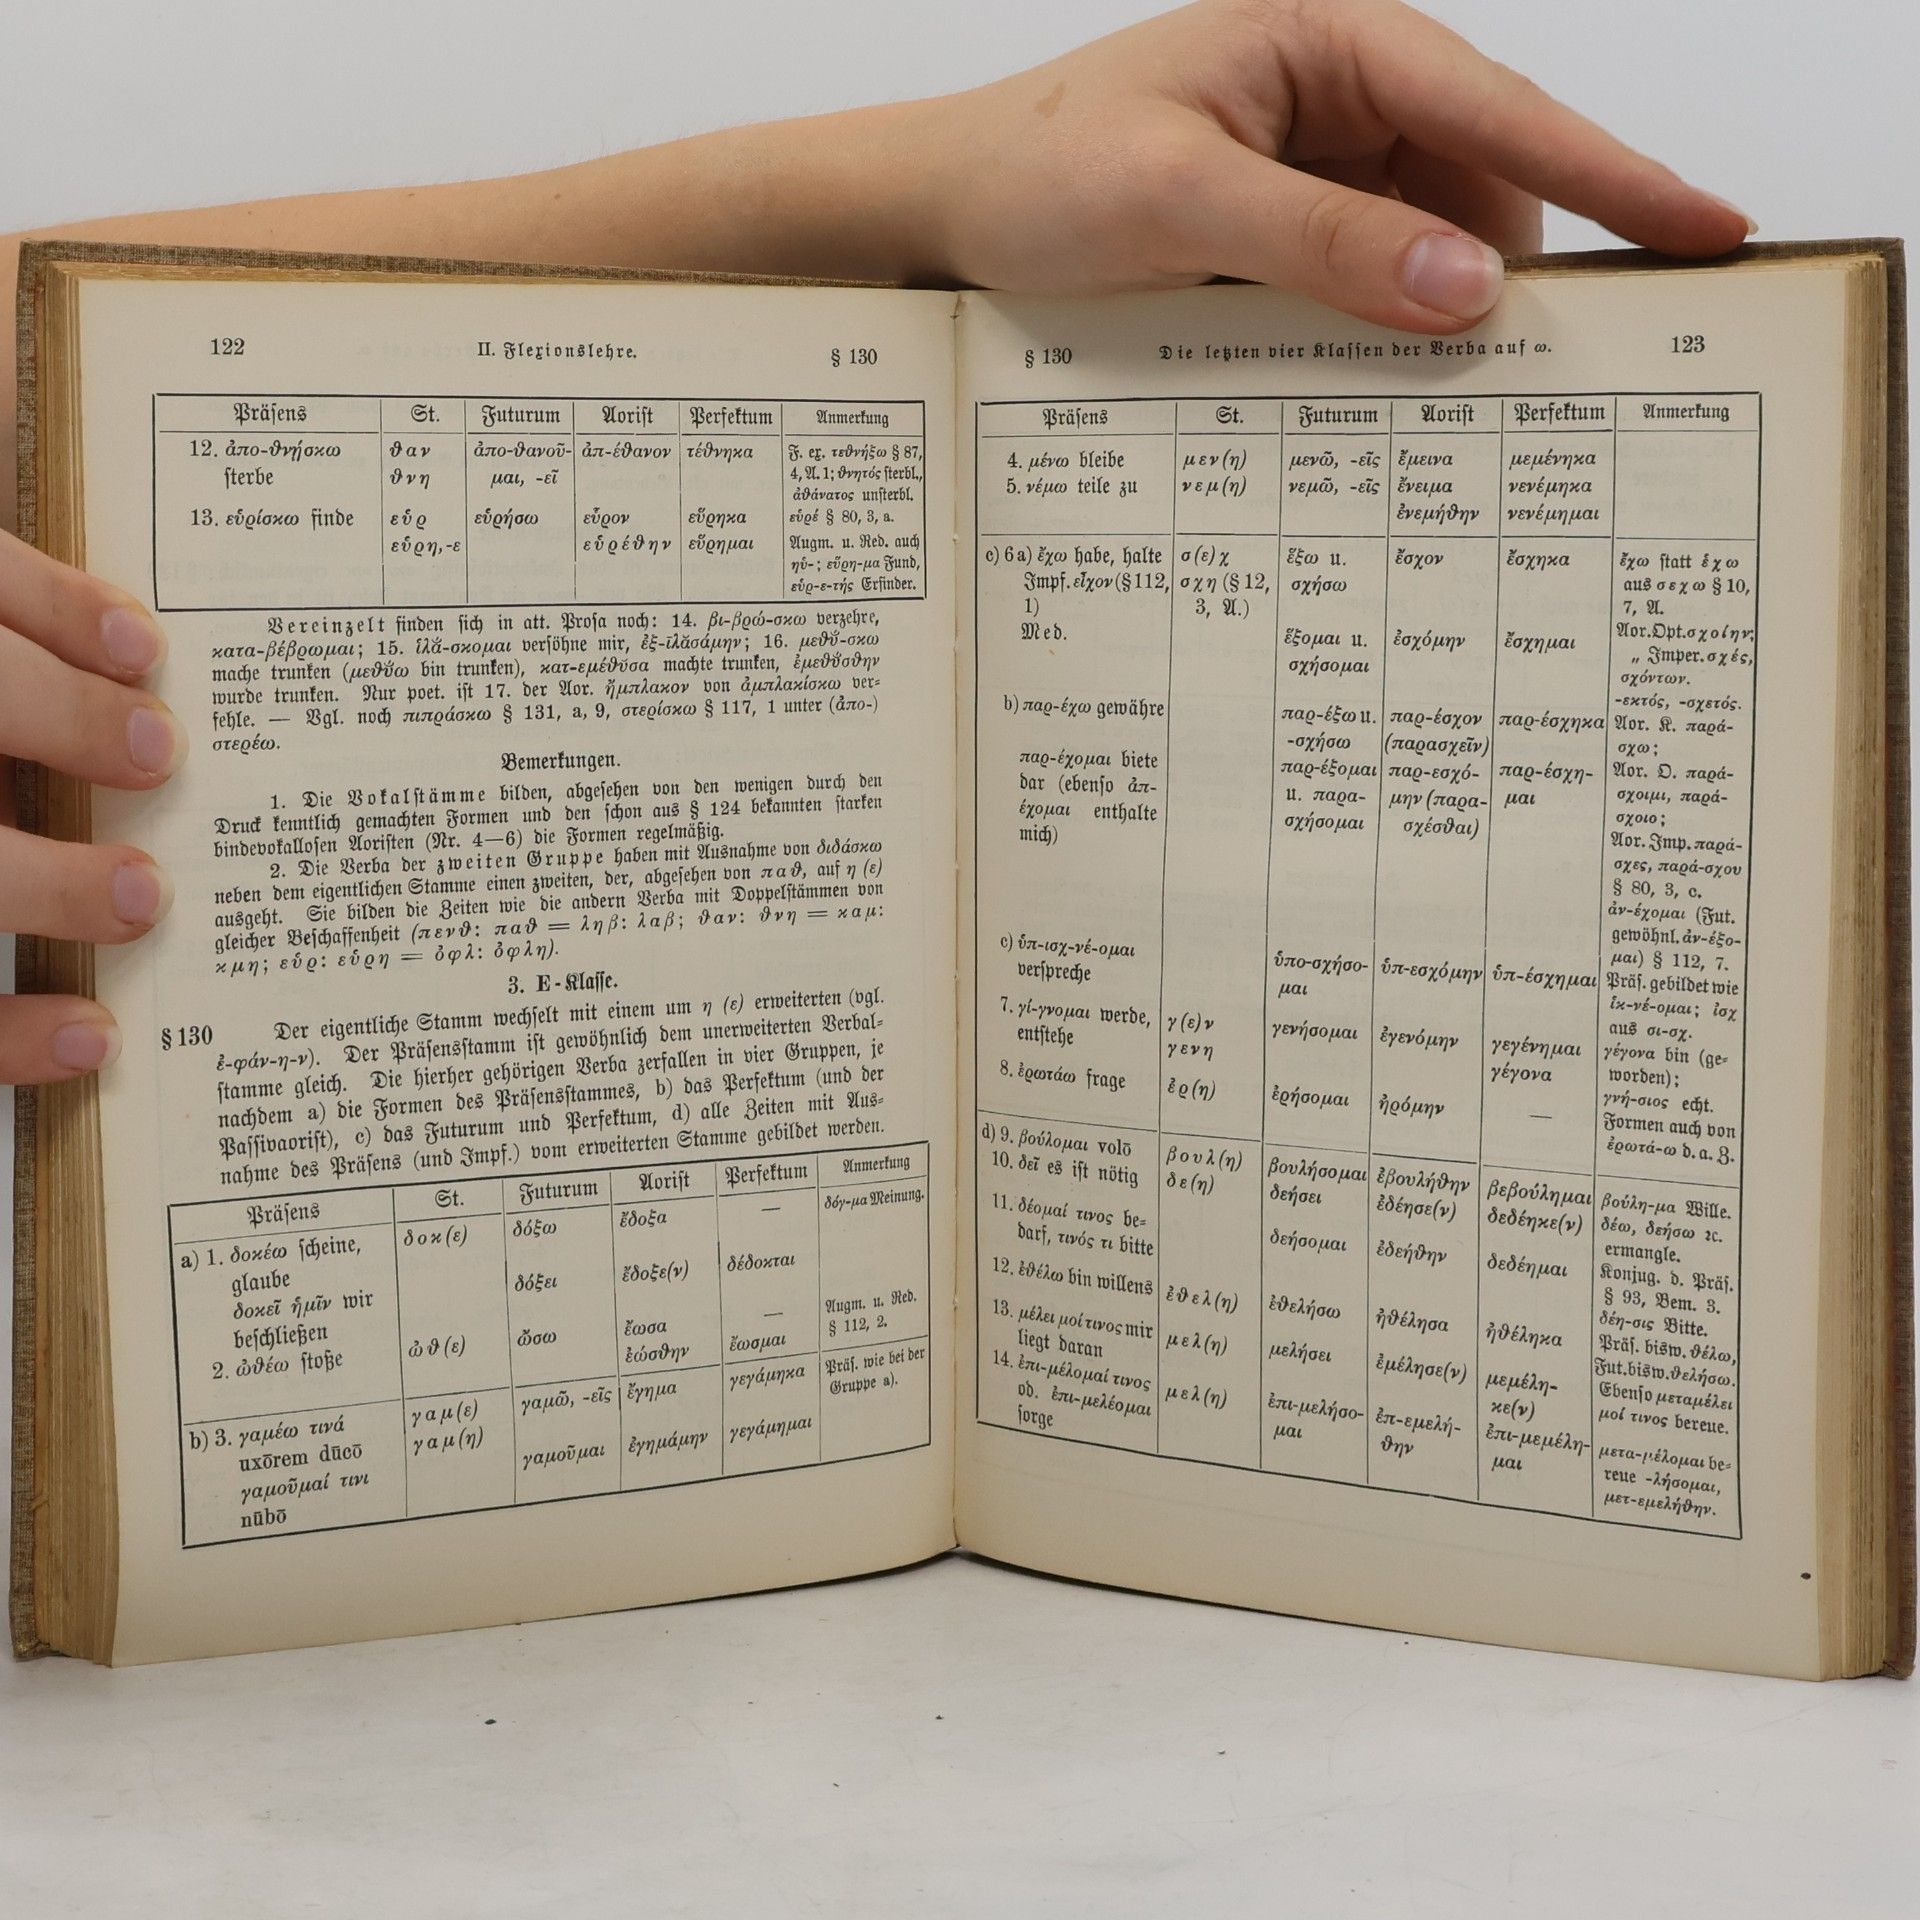 122 II. Flexionslehre. § 130
Präsens St. Futurum Aorist Perfektum Anmerkung
12. ἀπο-θνῄσκω θαν ἀπο-θανοῦ- ἀπ-έθανον τέθνηκα F. ex. τεθνήξω § 87,
sterbe θνη μαι, -εῖ 4, A. 1; θνητός sterbl.,
ἀθάνατος unsterbl.
13. εὑρίσκω finde εὑρ εὑρήσω εὗρον εὕρηκα εὑρέ § 80, 3, a.
εὑρη,-ε εὑρέθην εὕρημαι Augm. u. Red. auch
ηὑ-; εὕρη-μα Fund,
εὑρ-ε-τής Erfinder.
Vereinzelt finden sich in att. Prosa noch: 14. βι-βρώ-σκω verzehre,
κατα-βέβρωμαι; 15. ἱλᾰ́-σκομαι versöhne mir, ἐξ-ῑλᾰσάμην; 16. μεθῠ́-σκω
mache trunken (μεθῠ́ω bin trunken), κατ-εμέθῠσα machte trunken, ἐμεθῠ́σθην
wurde trunken. Nur poet. ist 17. der Aor. ἤμπλακον von ἀμπλακίσκω ver-
fehle. — Vgl. noch πιπράσκω § 131, a, 9, στερίσκω § 117, 1 unter (ἀπο-)
στερέω.
Bemerkungen.
1. Die Vokalstämme bilden, abgesehen von den wenigen durch den
Druck kenntlich gemachten Formen und den schon aus § 124 bekannten starken
bindevokallosen Aoristen (Nr. 4—6) die Formen regelmäßig.
2. Die Verba der zweiten Gruppe haben mit Ausnahme von διδάσκω
neben dem eigentlichen Stamme einen zweiten, der, abgesehen von παθ, auf η (ε)
ausgeht. Sie bilden die Zeiten wie die andern Verba mit Doppelstämmen von
gleicher Beschaffenheit (πενθ: παθ = ληβ: λαβ; θαν: θνη = καμ:
κμη; εὑρ: εὑρη = ὀφλ: ὀφλη).
3. E-Klasse.
§ 130 Der eigentliche Stamm wechselt mit einem um η (ε) erweiterten (vgl.
ἐ-φάν-η-ν). Der Präsensstamm ist gewöhnlich dem unerweiterten Verbal-
stamme gleich. Die hierher gehörigen Verba zerfallen in vier Gruppen, je
nachdem a) die Formen des Präsensstammes, b) das Perfektum (und der
Passivaorist), c) das Futurum und Perfektum, d) alle Zeiten mit Aus-
nahme des Präsens (und Impf.) vom erweiterten Stamme gebildet werden.
Präsens St. Futurum Aorist Perfektum Anmerkung
a) 1. δοκέω scheine, δοκ(ε) δόξω ἔδοξα — δόγ-μα Meinung.
glaube
δοκεῖ ἡμῖν wir δόξει ἔδοξε(ν) δέδοκται
beschließen
2. ὠθέω stoße ὠθ(ε) ὤσω ἔωσα — Augm. u. Red.
ἐώσθην ἔωσμαι § 112, 2.
b) 3. γαμέω τινά γαμ(ε) γαμῶ, -εῖς ἔγημα γεγάμηκα Präs. wie bei der
uxōrem dūcō γαμ(η) Gruppe a).
γαμοῦμαί τινι γαμοῦμαι ἐγημάμην γεγάμημαι
nūbō
§ 130 Die letzten vier Klassen der Verba auf ω. 123
Präsens St. Futurum Aorist Perfektum Anmerkung
4. μένω bleibe μεν(η) μενῶ, -εῖς ἔμεινα μεμένηκα
5. νέμω teile zu νεμ(η) νεμῶ, -εῖς ἔνειμα νενέμηκα
ἐνεμήθην νενέμημαι
c) 6 a) ἔχω habe, halte σ(ε)χ ἕξω u. ἔσχον ἔσχηκα ἔχω statt ἑχω
Impf. εἶχον (§ 112, σχη (§ 12, σχήσω aus σεχω § 10,
1) 3, A.) 7, A.
Med. ἕξομαι u. ἐσχόμην ἔσχημαι Aor. Opt. σχοίην;
σχήσομαι „ Imper. σχές,
σχόντων.
-εκτός, -σχετός.
b) παρ-έχω gewähre παρ-έξω u. παρ-έσχον παρ-έσχηκα Aor. K. παρά-
-σχήσω (παρασχεῖν) σχω;
παρ-έχομαι biete παρ-έξομαι παρ-εσχό- παρ-έσχη- Aor. O. παρά-
dar (ebenso ἀπ- u. παρα- μην (παρα- μαι σχοιμι, παρά-
έχομαι enthalte σχήσομαι σχέσθαι) σχοιο;
mich) Aor. Imp. παρά-
σχες, παρά-σχου
§ 80, 3, c.
ἀν-έχομαι (Fut.
gewöhnl. ἀν-έξο-
μαι) § 112, 7.
c) ὑπ-ισχ-νέ-ομαι ὑπο-σχήσο- ὑπ-εσχόμην ὑπ-έσχημαι Präs. gebildet wie
verspreche μαι ἱκ-νέ-ομαι; ἰσχ
aus σι-σχ.
7. γί-γνομαι werde, γ(ε)ν γενήσομαι ἐγενόμην γεγένημαι γέγονα bin (ge-
entstehe γενη γέγονα worden);
γνή-σιος echt.
8. ἐρωτάω frage ἐρ(η) ἐρήσομαι ἠρόμην — Formen auch von
ἐρωτά-ω d. a. Z.
d) 9. βούλομαι volō βουλ(η) βουλήσομαι ἐβουλήθην βεβούλημαι βούλη-μα Wille.
10. δεῖ es ist nötig δε(η) δεήσει ἐδέησε(ν) δεδέηκε(ν) δέω, δεήσω ꝛc.
ermangle.
11. δέομαί τινος be- δεήσομαι ἐδεήθην δεδέημαι Konjug. d. Präs.
darf, τινός τι bitte § 93, Bem. 3.
δέη-σις Bitte.
12. ἐθέλω bin willens ἐθελ(η) ἐθελήσω ἠθέλησα ἠθέληκα Präs. bisw. θέλω,
Fut. bisw. θελήσω.
13. μέλει μοί τινος mir μελ(η) μελήσει ἐμέλησε(ν) μεμέλη- Ebenso μεταμέλει
liegt daran κε(ν) μοί τινος bereue.
14. ἐπι-μέλομαί τινος μελ(η) ἐπι-μελήσο- ἐπ-εμελή- ἐπι-μεμέλη- μετα-μέλομαι be-
od. ἐπι-μελέομαι μαι θην μαι reue -λήσομαι,
sorge μετ-εμελήθην.